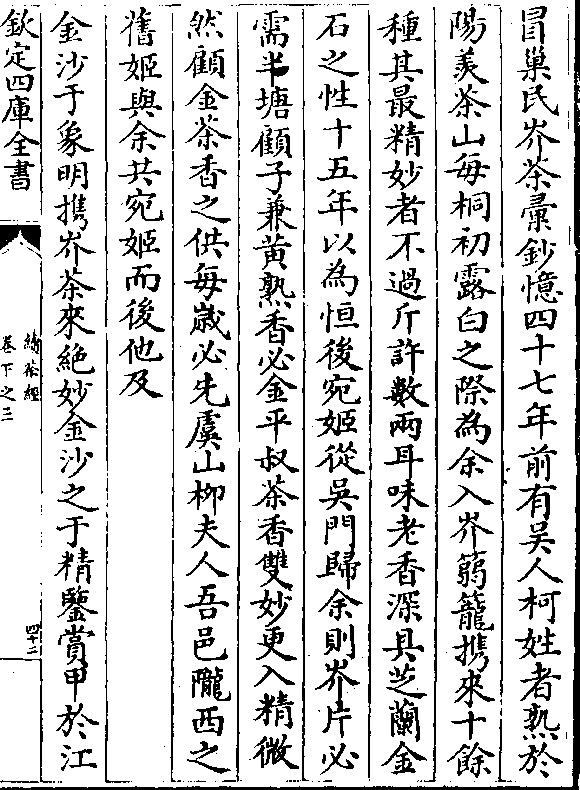 冒巢民岕茶彙鈔憶四十七年前有吳人柯姓者熟於
陽羨茶山每桐初露白之際為余入岕篛籠携來十餘
種其最精妙者不過斤許數兩耳味老香深具芝蘭金
石之性十五年以為恒後宛姬從吳門歸余則岕片必
需半塘顧子兼黄熟香必金平叔茶香雙妙更入精微
然顧金茶香之供每歲必先虞山柳夫人吾邑隴西之
舊姬與余共宛姬而後他及
金沙于象明携岕茶來絶妙金沙之于精鑒賞甲於江
欽定四庫全書
續茶經
卷下之三
四十二